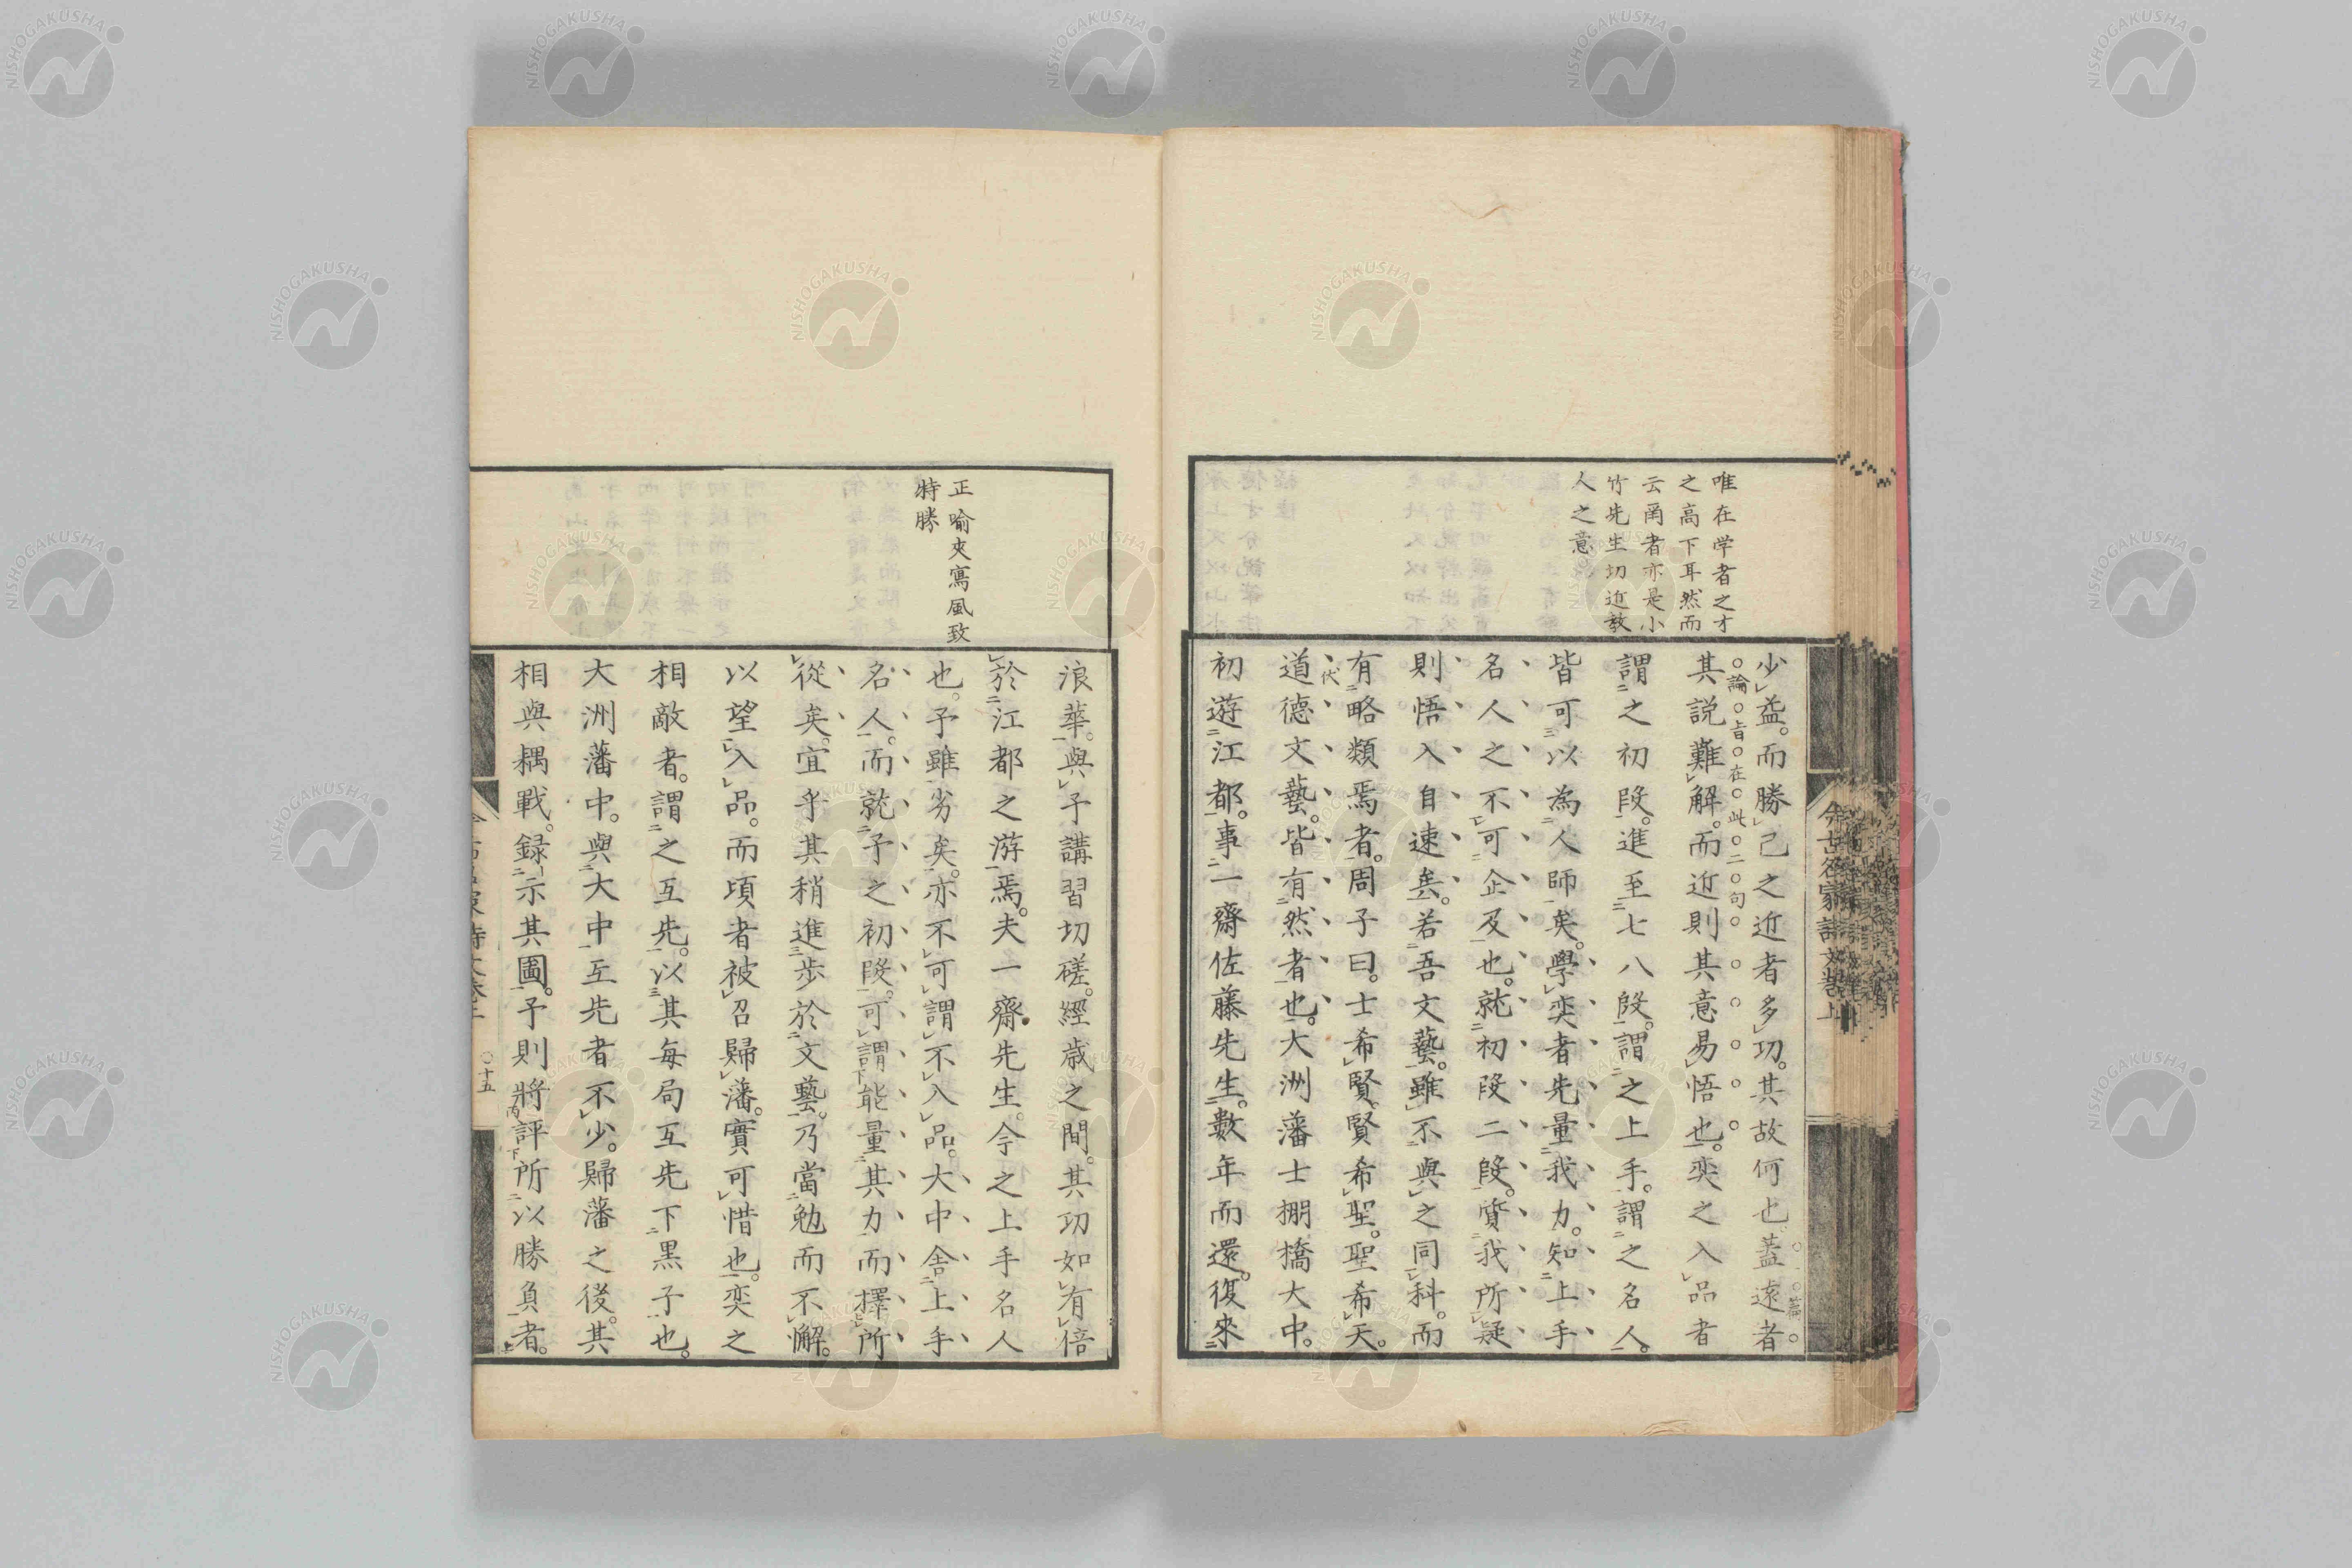 唯在学者之才
之高下耳然而
云爾者亦是小
竹先生切近教
人之意
少益。而勝己之近者多功。其故何也。蓋遠者
一篇
論旨在此二句
其説難解。而近則其意易悟也。奕之入品者
謂之初段。進至七八段。謂之上手。謂之名人。
皆可以為人師矣。學奕者先量我力。知上手
名人之不可企及也。就初段二段。質我所疑
則悟入自速矣。若吾文藝。雖不與之同科。而
有略類焉者。周子曰。士希賢。賢希聖。聖希天。
伏
道德文藝。皆有然者也。大洲藩士棚橋大中。
初遊江都。事一齋佐藤先生。數年而還。復來
今古名家詩文巻上
正喻夾寫風致
特勝
浪華。與予講習切磋。經歲之間。其功如有倍
於江都之游焉。夫一齋先生。今之上手名人
也。予雖劣矣。亦不可謂不入品。大中舍上手
名人。而就予之初段。可謂能量其力而擇所
從矣。宜乎其稍進步於文藝。乃當勉而不懈。
以望入品。而頃者被召歸藩。實可惜也。奕之
相敵者。謂之互先。以其每局互先下黑子也。
大洲藩中。與大中互先者不少。歸藩之後。其
相與耦戰。録示其圖。予則將評所以勝負者。
十五
NISHOGAKUSHA